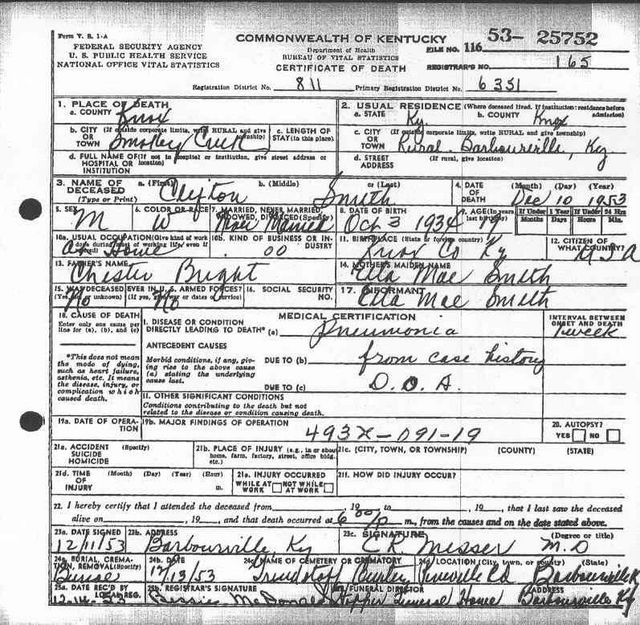 Form V. S. 1-A
FEDERAL SECURITY AGENCY
U. S. PUBLIC HEALTH SERVICE
NATIONAL OFFICE VITAL STATISTICS
COMMONWEALTH OF KENTUCKY
Department of Health
BUREAU OF VITAL STATISTICS
CERTIFICATE OF DEATH
FILE NO. 116 53- 25752
REGISTRAR'S NO. 165
Registration District No. 811 Primary Registration District No. 6351
1. PLACE OF DEATH
a. COUNTY Knox
2. USUAL RESIDENCE (Where deceased lived. If institution: residence before admission)
a. STATE Ky b. COUNTY Knox
b. CITY (If outside corporate limits, write RURAL and give township) OR TOWN Smokey Creek
c. LENGTH OF STAY (in this place)
c. CITY (If outside corporate limits, write RURAL and give township) OR TOWN Rural. Barbourville, Ky
d. FULL NAME OF (If not in hospital or institution, give street address or location) HOSPITAL OR INSTITUTION
d. STREET ADDRESS (If rural, give location)
3. NAME OF DECEASED (Type or Print)
a. (First) Clifton b. (Middle) c. (Last) Smith
4. DATE OF DEATH (Month) (Day) (Year) Dec 10 1953
5. SEX M
6. COLOR OR RACE W
7. MARRIED, NEVER MARRIED, WIDOWED, DIVORCED (Specify) Never Married
8. DATE OF BIRTH Oct 3 1934
9. AGE (In years last birthday) 19 If Under 1 Year Months Days If Under 24 Hrs. Hours Min.
10a. USUAL OCCUPATION (Give kind of work done during most of working life, even if retired) At Home
10b. KIND OF BUSINESS OR INDUSTRY 00
11. BIRTHPLACE (State or foreign country) Knox Co Ky
12. CITIZEN OF WHAT COUNTRY? USA
13. FATHER'S NAME Chester Bright
14. MOTHER'S MAIDEN NAME Etta Mae Smith
15. WAS DECEASED EVER IN U. S. ARMED FORCES? (Yes, no, or unknown) (If yes, give war or dates of service) No No
16. SOCIAL SECURITY NO.
17. INFORMANT Etta Mae Smith
18. CAUSE OF DEATH
Enter only one cause per line for (a), (b), and (c)
*This does not mean the mode of dying, such as heart failure, asthenia, etc. It means the disease, injury, or complication which caused death.
MEDICAL CERTIFICATION
INTERVAL BETWEEN ONSET AND DEATH
I. DISEASE OR CONDITION DIRECTLY LEADING TO DEATH* (a) Pneumonia 1 week
ANTECEDENT CAUSES
Morbid conditions, if any, giving rise to the above cause (a) stating the underlying cause last.
DUE TO (b) from case history
DUE TO (c) D.O.A.
II. OTHER SIGNIFICANT CONDITIONS
Conditions contributing to the death but not related to the disease or condition causing death.
19a. DATE OF OPERATION
19b. MAJOR FINDINGS OF OPERATION
493X-091-19
20. AUTOPSY?
YES NO
21a. ACCIDENT SUICIDE HOMICIDE
21b. PLACE OF INJURY (e.g., in or about home, farm, factory, street, office bldg. etc.)
21c. (CITY, TOWN, OR TOWNSHIP) (COUNTY) (STATE)
21d. TIME OF INJURY (Month) (Day) (Year) (Hour) m.
21e. INJURY OCCURRED
WHILE AT WORK NOT WHILE AT WORK
21f. HOW DID INJURY OCCUR?
22. I hereby certify that I attended the deceased from , 19 , to , 19 , that I last saw the deceased
alive on , 19 , and that death occurred at 6 00 p m., from the causes and on the date stated above.
23a. DATE SIGNED 12/11/53
23b. ADDRESS Barbourville, Ky
23c. SIGNATURE (Degree or title) C K Misser M.D
24a. BURIAL, CREMATION, REMOVAL (Specify) Burial
24b. DATE 12/13/53
24c. NAME OF CEMETERY OR CREMATORY
24d. LOCATION (City, town, or county) (State) Barbourville Ky
25a. DATE REC'D BY LOCAL REG. 12-14-53
25b. REGISTRAR'S SIGNATURE Bessie McDonald
FUNERAL DIRECTOR Hopper Funeral Home
ADDRESS Barbourville Ky